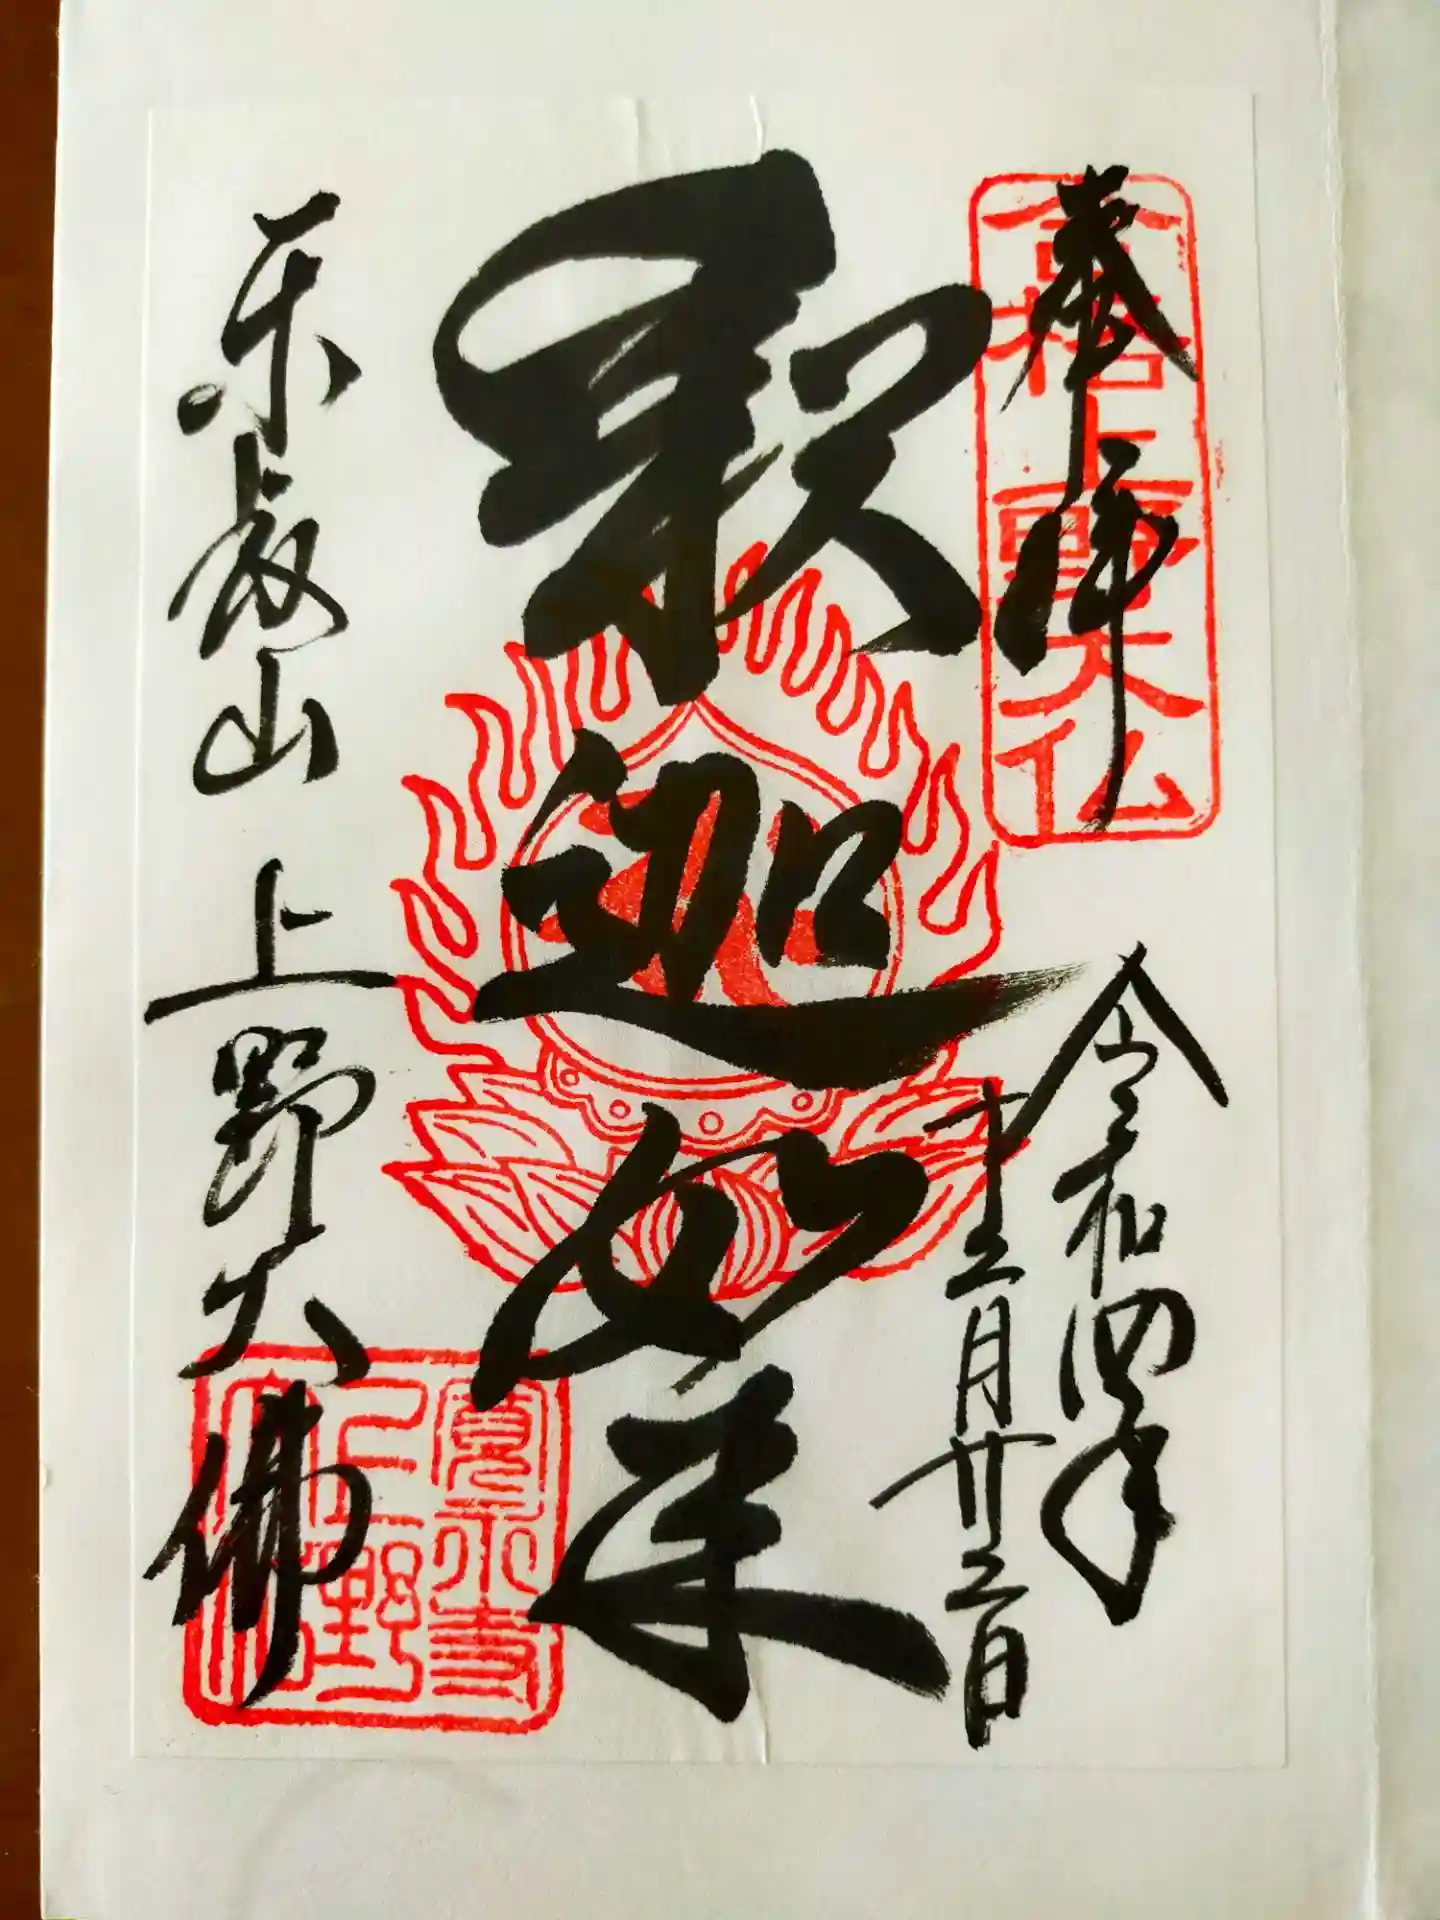 奉拝
合格上野大仏
令和四年
十二月廿二日
釈迦如来
東叡山 上野大佛
寛永寺
上野
大佛